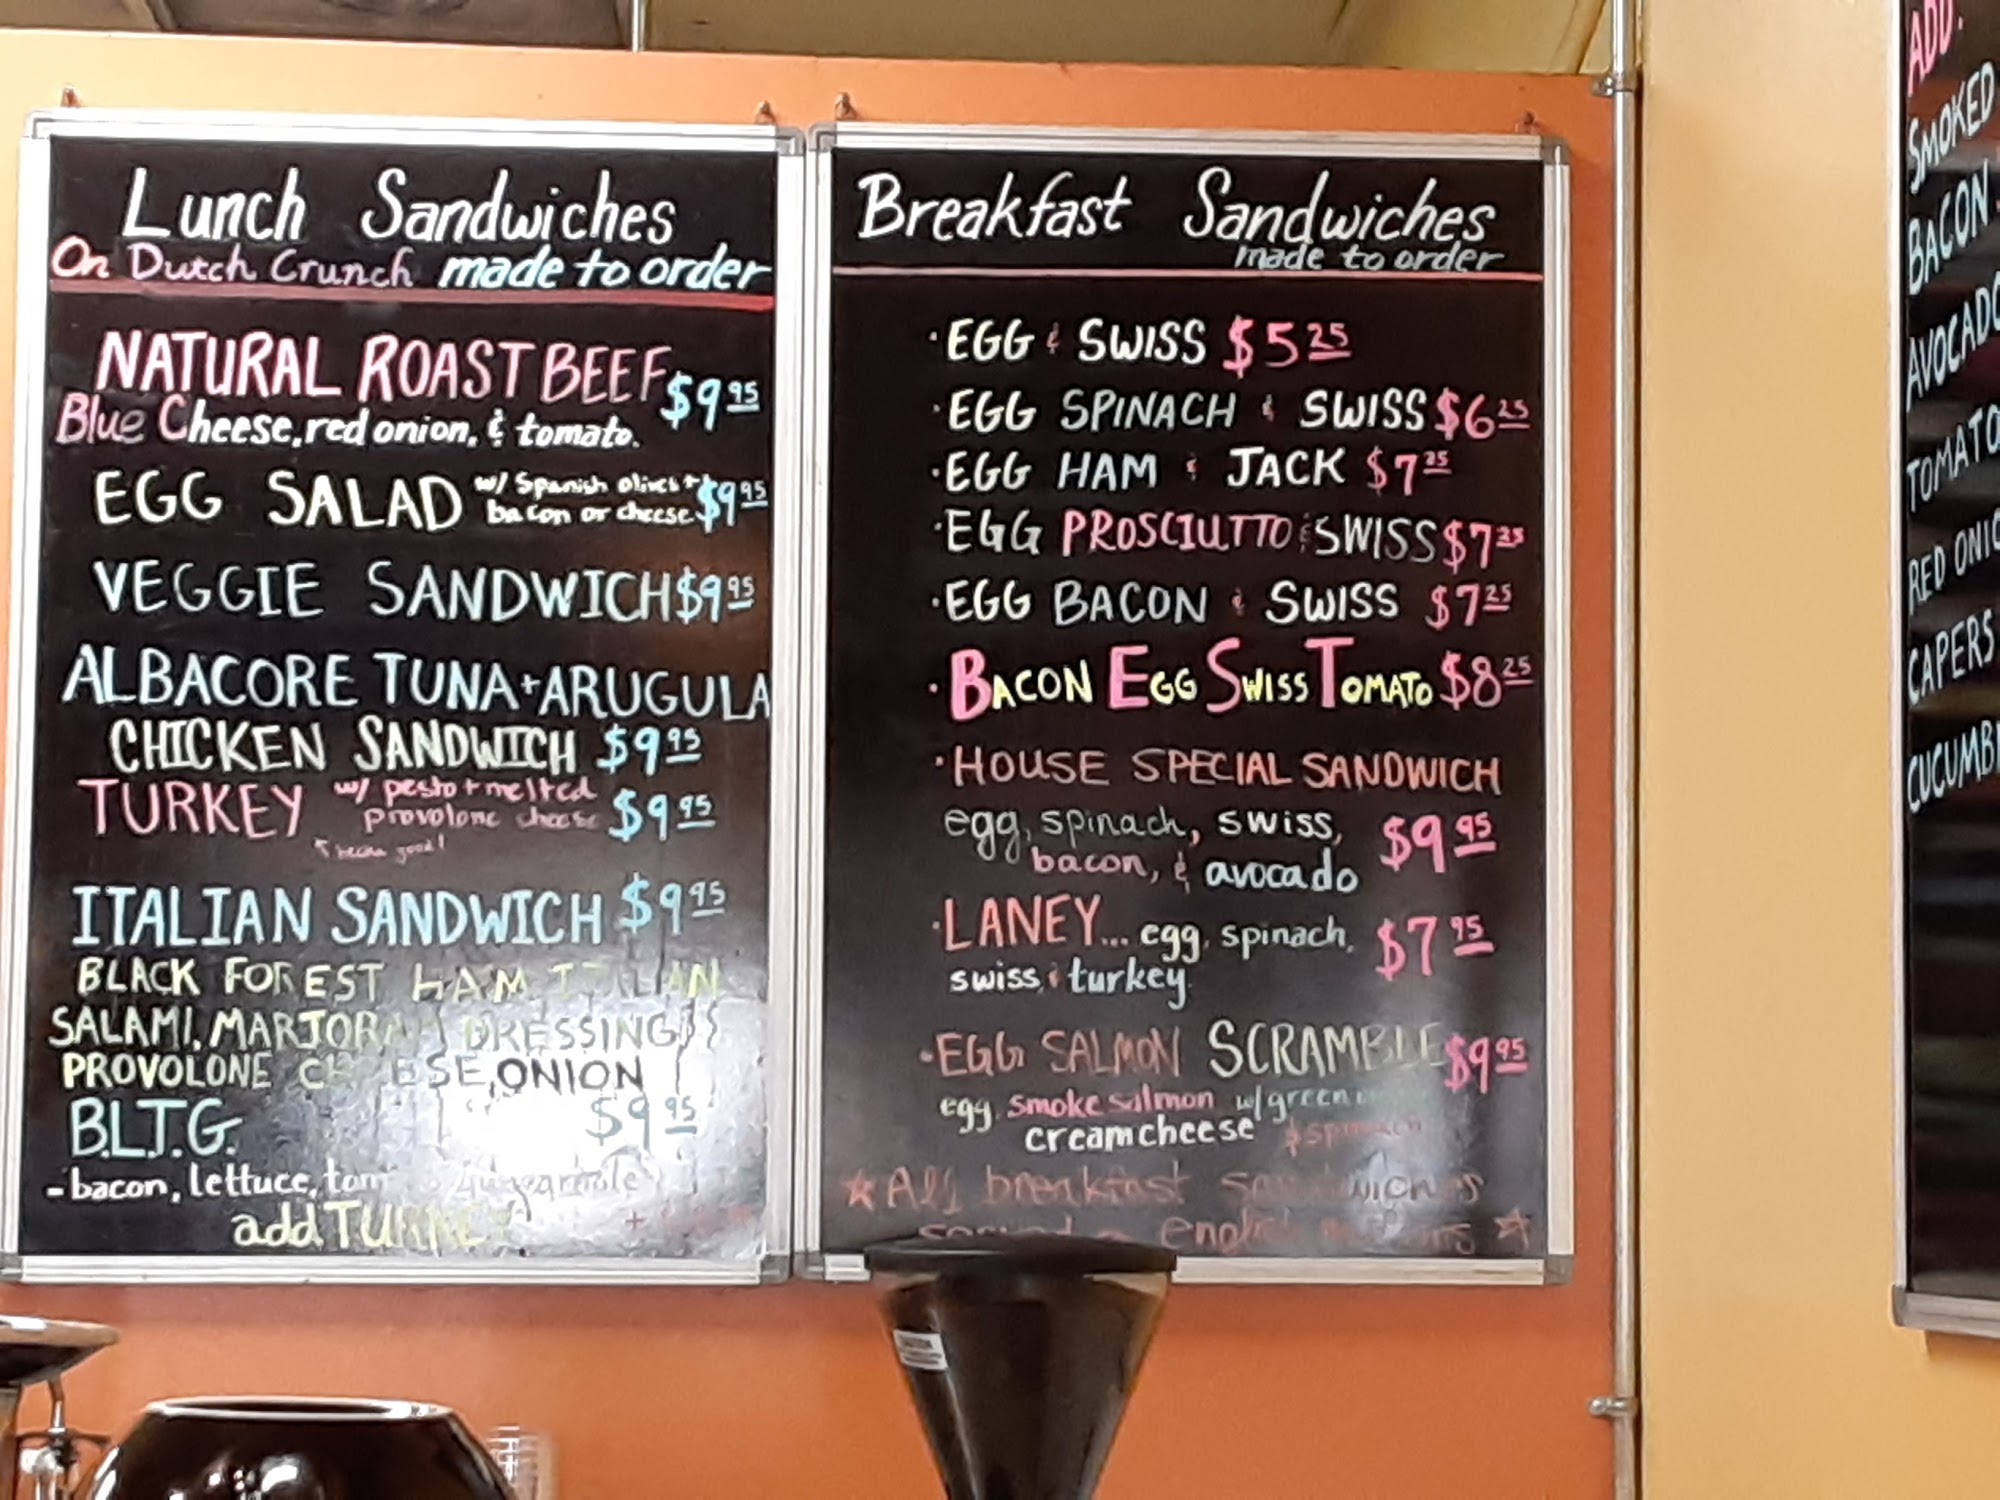 Lunch Sandwiches
On Dutch Crunch made to order
NATURAL ROAST BEEF $9.95
Blue Cheese, red onion, & tomato.
EGG SALAD w/ Spanish olives + $9.95
bacon or cheese
VEGGIE SANDWICH $9.95
ALBACORE TUNA + ARUGULA
CHICKEN SANDWICH $9.95
TURKEY w/ pesto + melted
provolone cheese $9.95
good!
ITALIAN SANDWICH $9.95
BLACK FOREST HAM ITALIAN
SALAMI, MARJORAM DRESSING
PROVOLONE CHEESE, ONION
B.L.T.G. $9.95
- bacon, lettuce, tom
add TURKEY
Breakfast Sandwiches
made to order
· EGG & SWISS $5.25
· EGG SPINACH & SWISS $6.25
· EGG HAM & JACK $7.25
· EGG PROSCIUTTO & SWISS $7.25
· EGG BACON & SWISS $7.25
· BACON EGG SWISS TOMATO $8.25
· HOUSE SPECIAL SANDWICH
egg, spinach, swiss,
bacon, & avocado $9.95
· LANEY... egg, spinach, $7.95
swiss, & turkey
· EGG SALMON SCRAMBLE $9.95
egg, smoke salmon w/ green
creamcheese & spinach
☆ All breakfast sandwiches
served on english muffins ☆
ADD:
SMOKED
BACON
AVOCADO
TOMATO
RED ONIO
CAPERS
CUCUMB